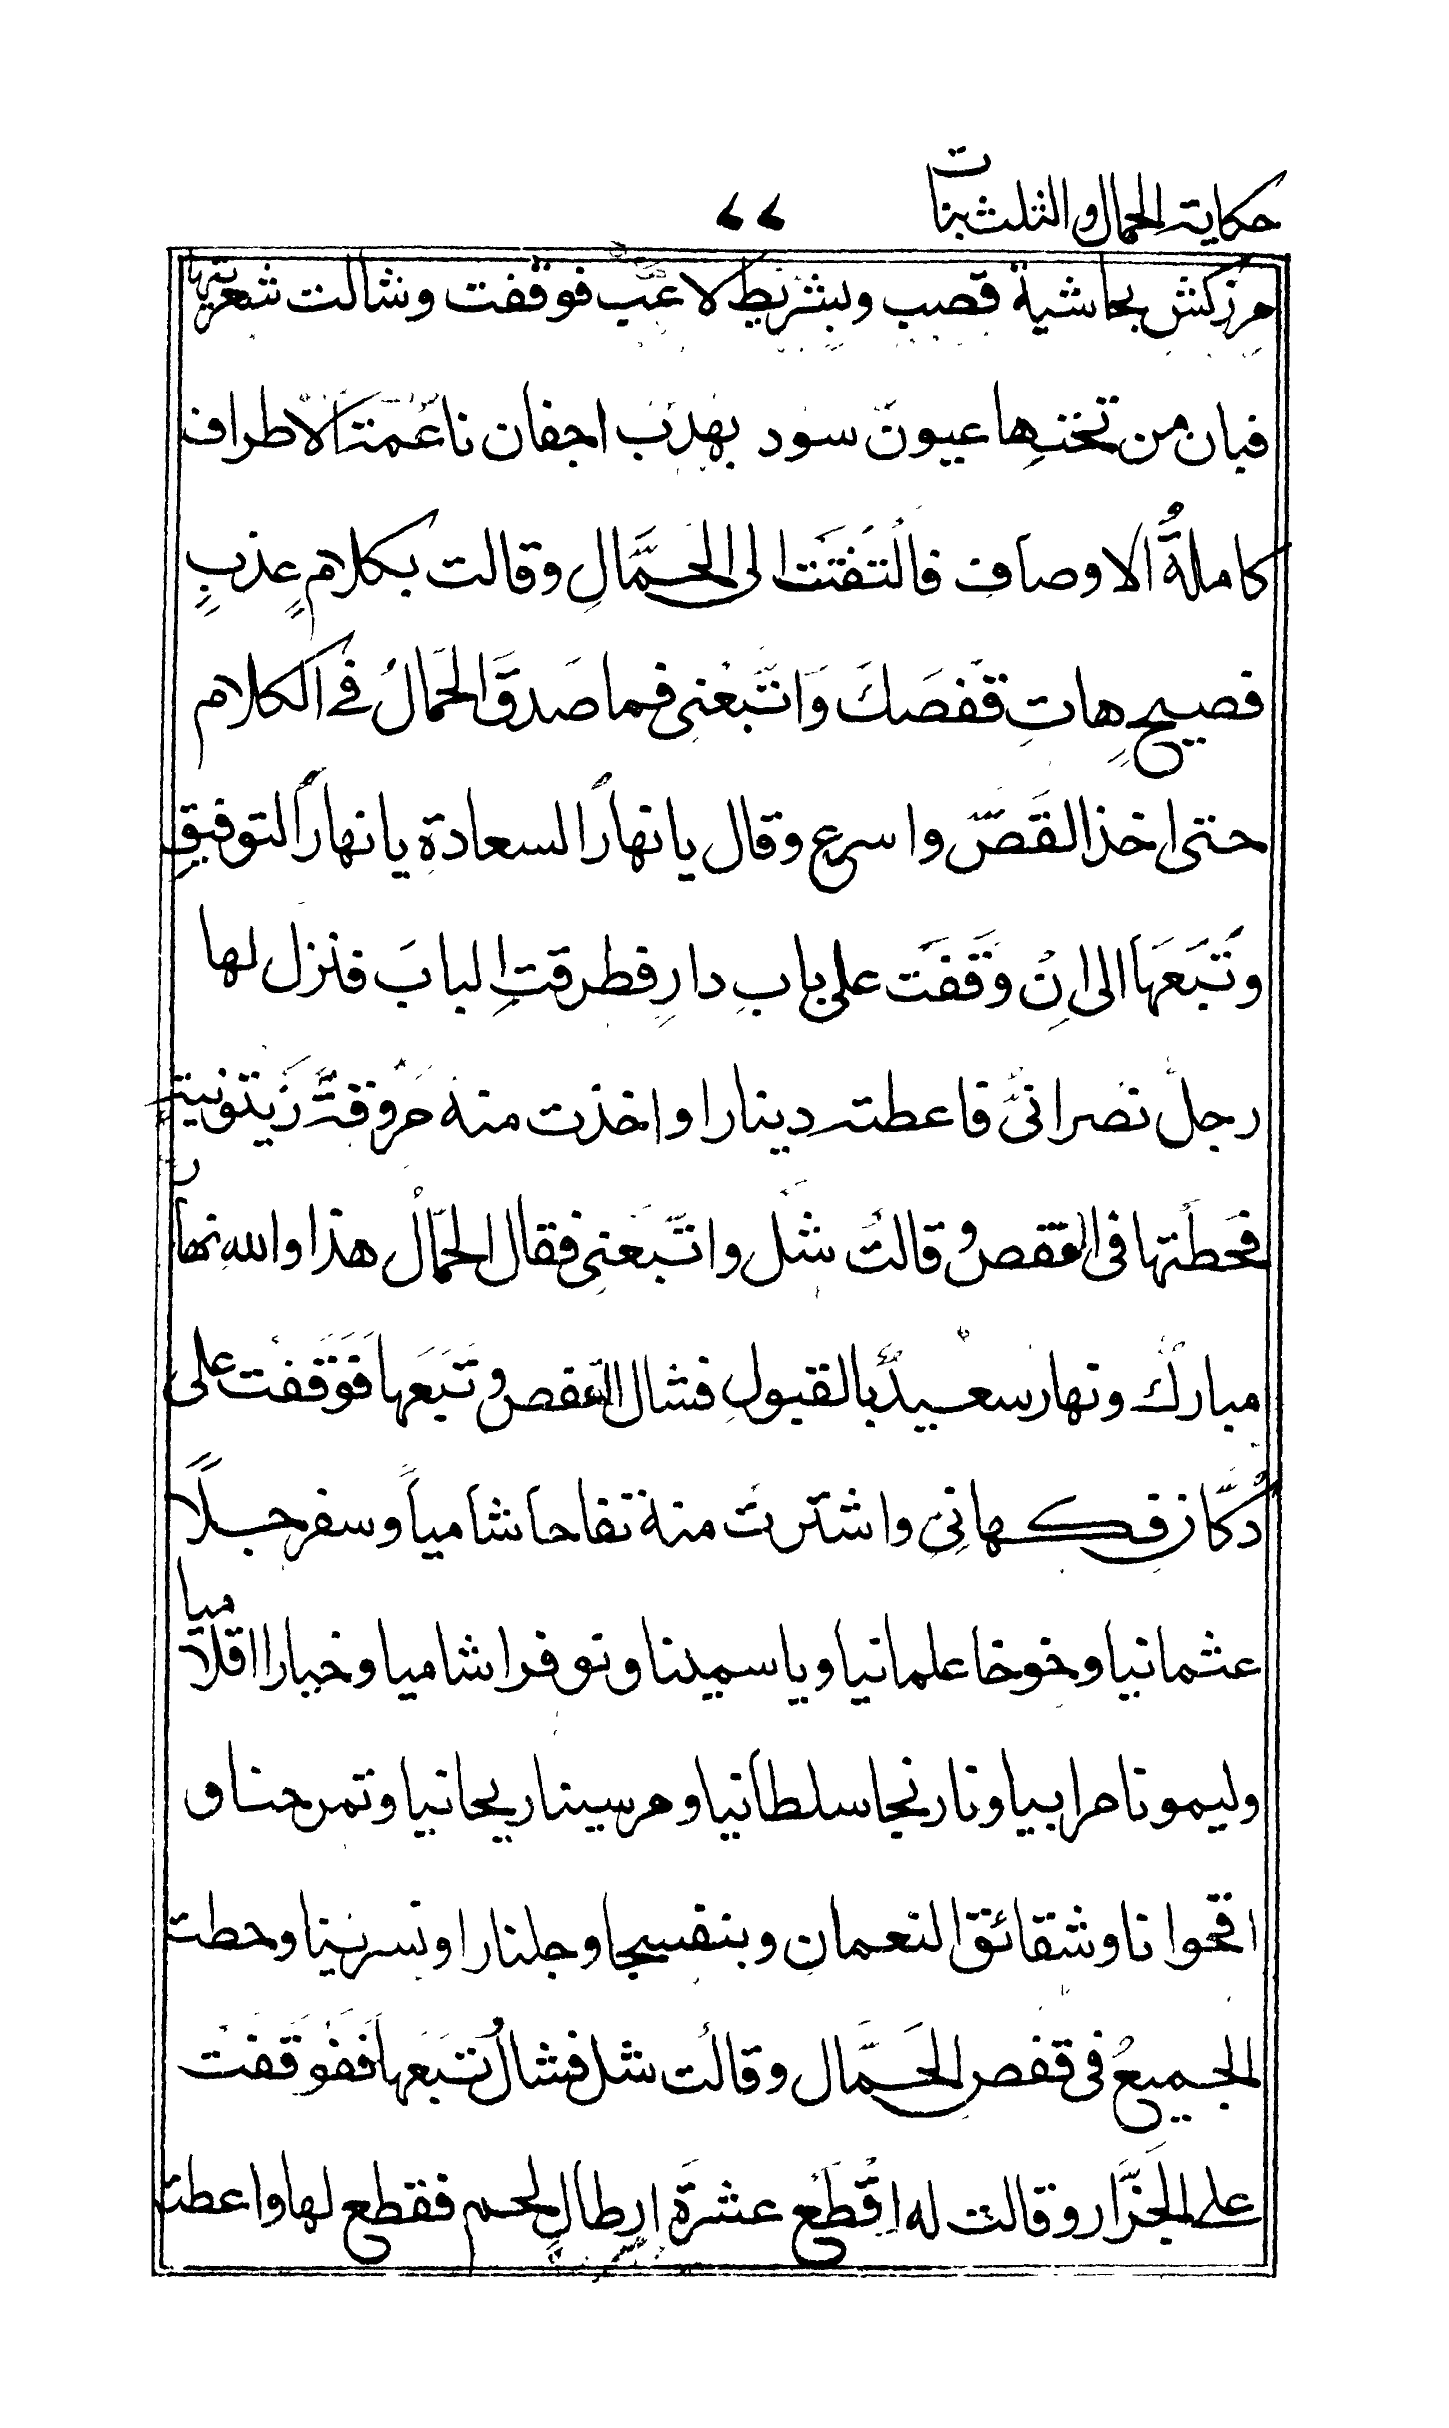 حكاية الحمال والثلث بنات
٢٢
مزركش بحاشية قصب وبشريط لاعب فوقفت وشالت شعريتها
فبان من تحتها عيون سود بهدب اجفان ناعمة الاطراف
كاملةُ الاوصاف فالتفتت الى الحمَّالِ وقالت بكلامٍ عذبٍ
فصيحٍ هاتِ قفصَكَ وَاتَّبعْنى فما صَدقَ الحمالُ فى الكلام
حتى اخذ القَفَصَ واسرع وقال يا نهارَ السعادةِ يا نهارَ التوفيقِ
وتَبَعَهَا الى اِنْ وَقَفَت على بابِ دارٍ فطرقتِ البابَ فنزل لها
رجلٌ نصرانىٌّ فاعطته دينارا واخذت منهُ مَرْوقةً زيتونية
فحَطَتها فى القفص وقالتْ شلْ واتَّبعنى فقال الحمَّالْ هذا واللهِ نهار
مباركٌ ونهار سعيدٌ بالقبولِ فشال القفص وتَبَعَها فَوَقَفتْ على
دُكّانِ فكهانىٍ واشترتْ منهُ تفاحاً شامياً وسفرجلًا
عثمانيا وخوخا علمانيا وياسمينا ونوفرا شاميا وخيارا اقلاميا
وليمونا مرابيا ونارنجا سلطانيا ومرسينا ريحانيا وتمرحنا و
اقحوانا وشقائق النعمان وبنفسجا وجلنارا ونسرينا وحطت
الجميعُ فى قفصِ الحَمَّال وقالتْ شل فشالُ تَبَعَها فَفَوقَفتْ
على الجَزَّار وقالت له اِقْطَعْ عشرَةَ ارطالِ لحمٍ فقطع لها واعطته